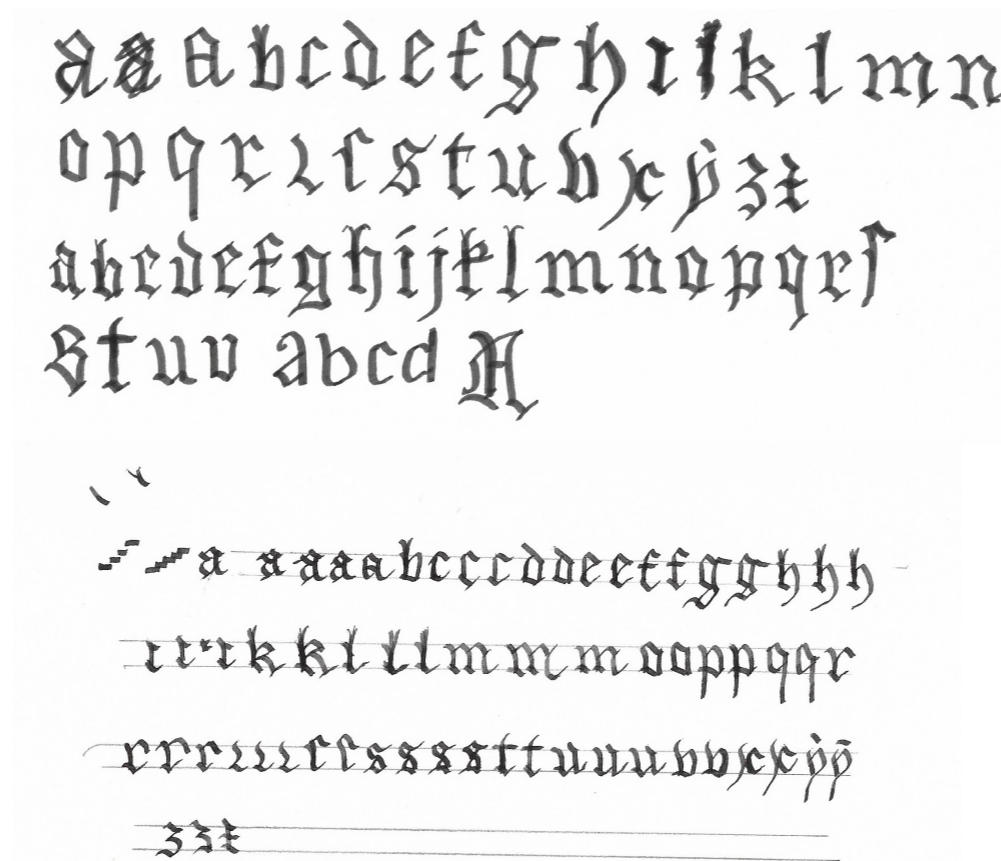 a a a b c d e f g h ı ſ k l m n
o p q r ꝛ ſ s t u v x ẏ z ꝫ
a b c d e f g h i j k l m n o p q r ſ
s t u v a b c d A
a a a a a b c c c c d d e e f f g g h h h
ı ı ı ı k k l l l m m m o o p p q q r
r r r ꝛ ꝛ ꝛ ſ ſ s s s s t t u u u v v x x ẏ ẏ
z z ꝫ